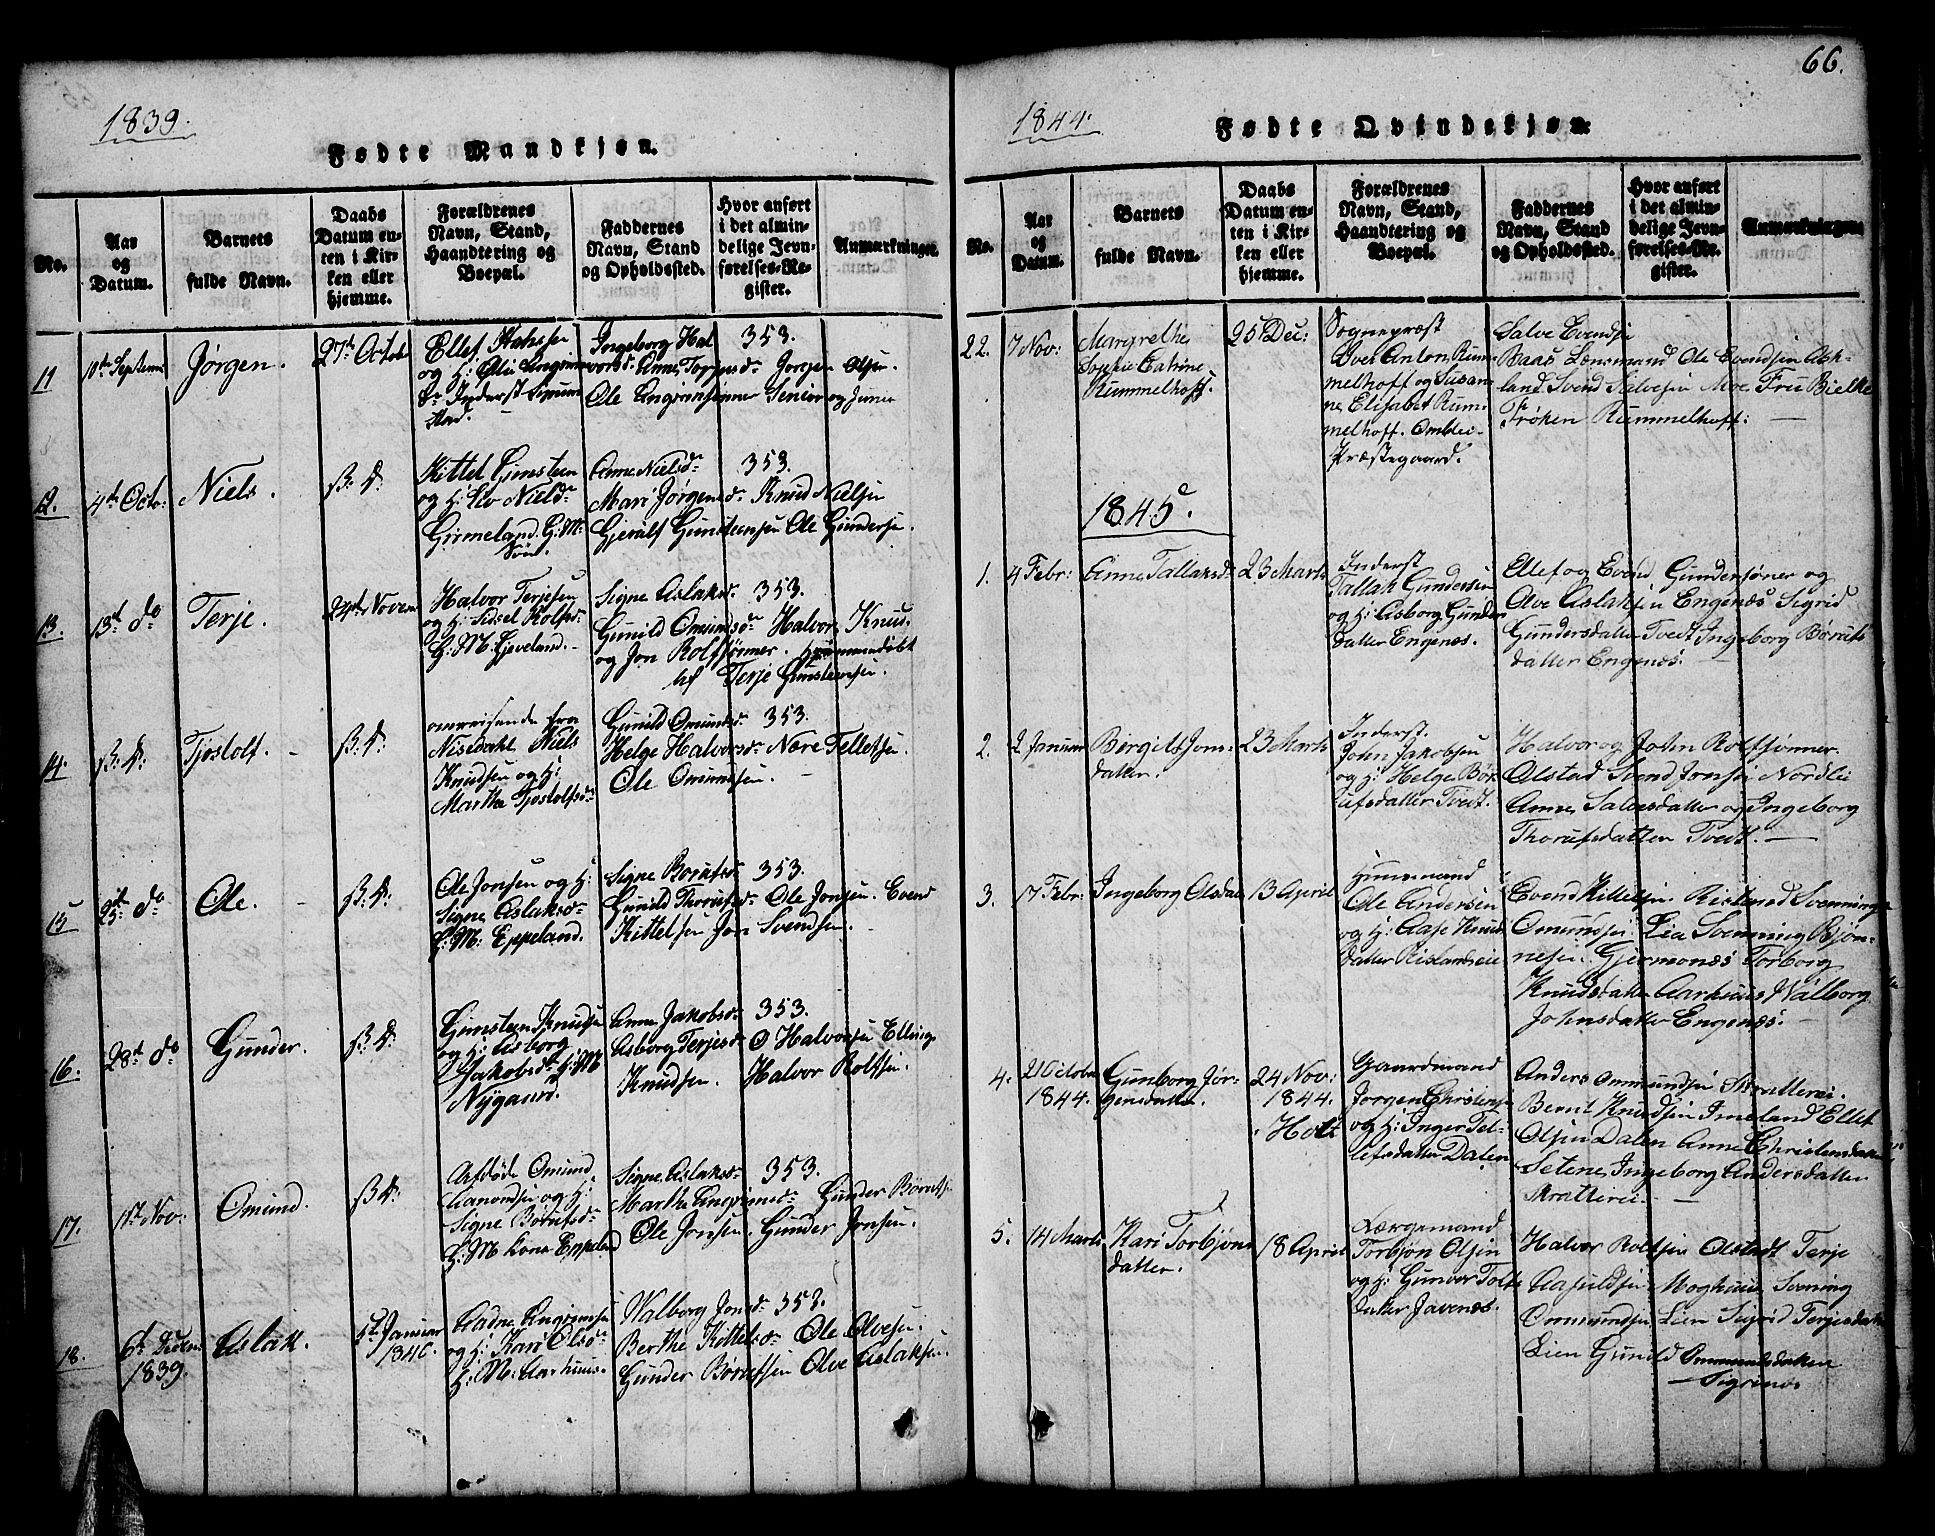 1839.
Fødte Mandkjøn.
No.
Aar og Datum.
Barnets fulde Navn.
Daabs Datum enten i Kirken eller hjemme.
Forældrenes Navn, Stand, Haandtering og Boepæl.
Faddernes Navn, Stand og Opholdssted.
Hvor anført i det almindelige Jevnførelses-Register.
Anmærkninger.
11
10de Septembr
Jørgen.
27de Octob
Ellef
og H:
Inderst
Ingeborg Hal
vorsd: Anne
Jørgen Olsen.
Ole Senior og Junior
353.
12.
4de Octo:
Niels.
Kittel Gunsteen
og H: Liv Nielsd:
G: M:
Anne Nielsd:
Mari Jørgensd: Knud Nielsen
Gjerulf Gunsteensen Ole Gundersen.
353.
13.
13de do
Terje.
24de Novem
Halvor Terjesen
og H: Sidsel Rolfsd:
G: M:
Signe Aslaksd:
Gunild Omundsd: Halvor Knus.
og Jon Rolfsønner. hjemmedøbt
af Terje Gunsteensen.
353.
14.
Tjostolf.
omreisende fra
Nisedahl Niels
Knudsen og H:
Marthe Tjostolfsd:
Gunild Omundsd:
Helge Halvorsd: Nære Tellefsen.
Ole Omundsen.
353.
15
25de do
Ole.
Ole Jonsen og H:
Signe Aslaksd:
G: M: Eppeland.
Signe Børufsd:
Gunild Thorufsd: Ole Jonsen. Evend
Kittelsen Jon Svendsen.
353.
16.
28de do
Gunder.
Gunsteen Knudsen
og H: Asborg
Jakobsd: G: M:
Nÿgaard.
Anne Jakobsd:
Asborg Terjesd: O Halvorsen Elling
Knudsen. Halvor Rolfsen.
353.
17.
11te Nov:
Omund.
Afdøde Omund
Aanondsen og H:
Signe Børufsd:
G: M: Kone Eppeland
Signe Aslaksd:
Marthe Gunder Børufsen
Ole Jonsen. Gunder Jonsen.
353.
18.
6te Decbr
1839.
Aslak.
5te Januar
1840.
Aadne Angrimsen
og H: Kari Olsd:
G: M: Aarhuus.
Valborg Jonsd:
Berthe Kittelsd: Ole Olvesen.
Gunder Børufsen Olve Aslaksen.
353.
66.
1844.
Fødte Qvindekjøn.
No.
Aar og Datum.
Barnets fulde Navn.
Daabs Datum enten i Kirken eller hjemme.
Forældrenes Navn, Stand, Haandtering og Boepæl.
Faddernes Navn, Stand og Opholdssted.
Hvor anført i det almindelige Jevnførelses-Register.
Anmærkninger.
22.
7 Nov:
Margrethe
Sophie Catrine
Rummelhoff.
25 Dec:
Sognepræst
Anton Rum-
melhoff og Susan
ne Elisabet Rum-
melhoff. Omblie
Præstegaard.
Salve Evendsen
Baas Lænsmand Ole Evendsen Ask-
land. Svend Salvesen Moe. Fru Bielke
Frøken Rummelhoff.
1845.
1.
4 Febr:
Anne Tallaksd:
23 Marts
Inderst
Tallak Gundersen
og H: Asborg Gunder
datter Engenæs.
Ellef og Evend Gundersønner og
Olve Aslaksen Engenæs Sigrid
Gundersdatter Tvedt Ingeborg Børufs
datter Engenæs.
2.
2 Januar
Børgilt Jons-
datter.
23 Marts
Inderst.
John Jakobsen
og H: Helge Bør
ufsdatter Tvedt.
Halvor og John Rolfsønner
Olstad Svend Jonsen Nordlie
Anne Salvesdatter og Ingeborg
Thorufsdatter Tvedt.
3.
17 Febr:
Ingeborg Olsda
13 April
Huusmand
Ole Andersen
og H: Aase Knud
datter Rislandseie
Evend Kittelsen Risland Svenning
Omundsen Lia Svenning Bjøn-
nesen. Gjermonæs Torborg
Knudsdatter Aarhuus Walborg
Johnsdatter Engenæs.
4.
21 Octobr
1844.
Gunborg Jør-
gensdatter.
24 Nov:
1844.
Holt
Gaardmand
Jørgen Christensen
og H: Inger Tel-
lefsdatter Dalen
Anders Ommundsen Skratterei.
Bernt Knudsen Imeland Ellef
Olsen Dalen Anne Christensdatter
Setene, Ingeborg Andersdatter
Skratterei.
5.
14 Marts
Kari Torbjøns
datter.
18 April
Torbjøn Olsen
og H: Gunvor Tolfs
datter Javenæs.
Halvor Rolfsen Olstadt Terje
Aasuldsen Moghuus Svening
Ommundsen Lien Sigrid Terjesdatter
Lien Gunild Ommundsdatter